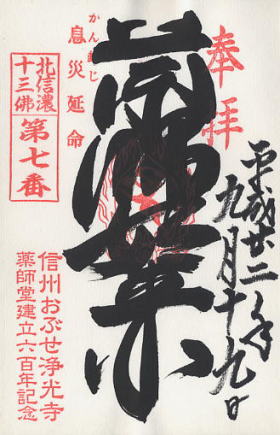 奉拝
平成廿二年
九月十九日
かんまじ
息災延命
北信濃
十三佛
第七番
信州おぶせ浄光寺
薬師堂建立六百年記念